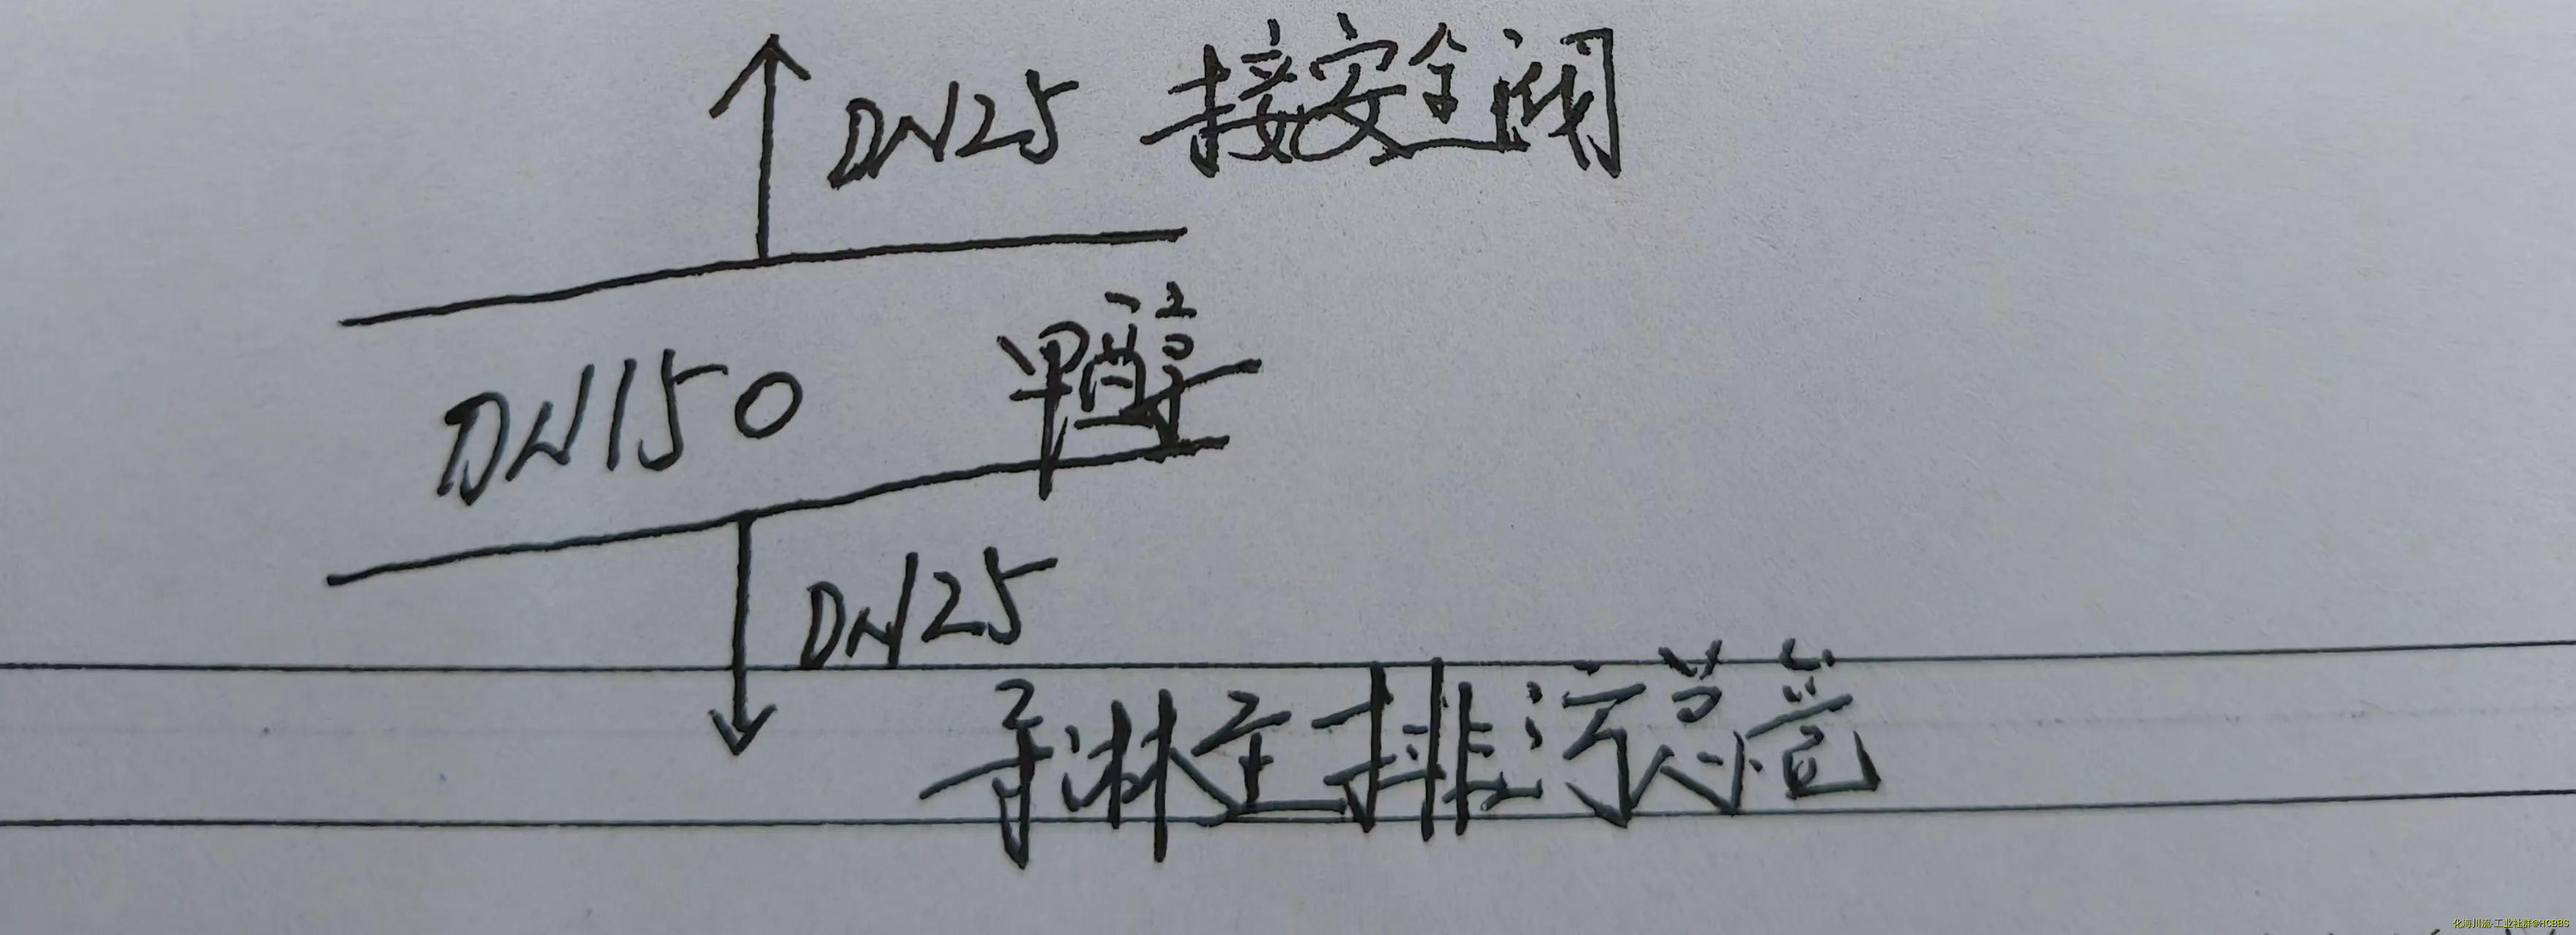 DN25 接安全阀
DN150 甲醇
DN25
导淋至排污总管
化海川流-工业社群@HCBBS